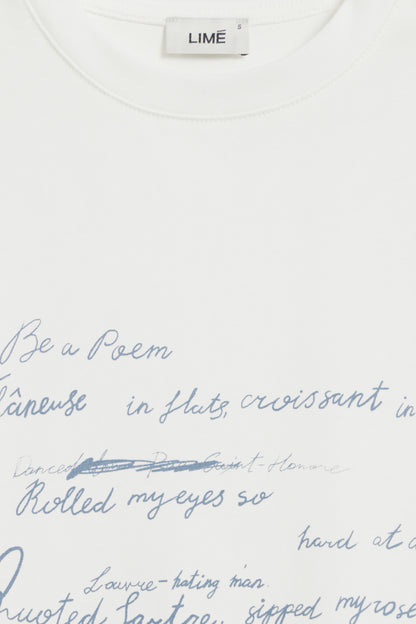 LIMÉ
S
Be a Poem
lâneuse in flats, croissant in
Danced Saint-Honore
Rolled my eyes so
hard at a
Louvre-hating man.
Quoted Sartre, sipped my rose